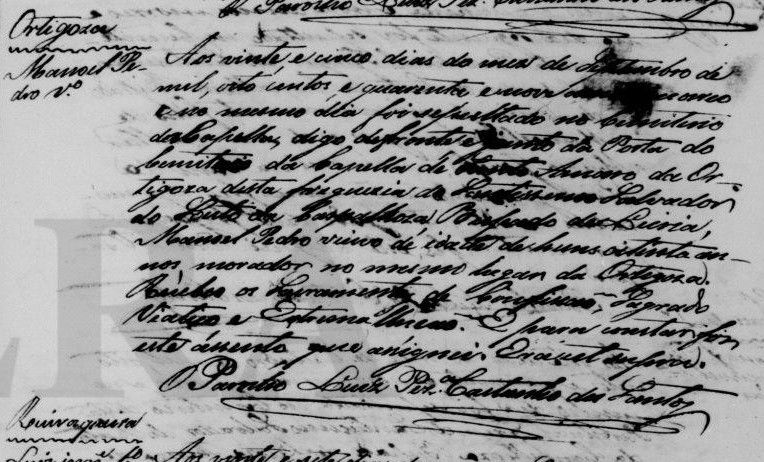 O Parocho Luiz Per.ª Castanho dos Santos
Ortigoza
Manoel Pe-
dro v.º
Aos vinte e cinco dias do mez de Dezembro de
mil, oito centos e quarenta e nove
e no mesmo dia foi sepultado no Cemiterio
da Capella, digo defronte e junto da Porta do
Cemiterio da Capella de Santo Amaro da Or-
tigoza desta freguezia do Santissimo Salvador
do Souto da Carpalhoza, Bispado de Leiria,
Manoel Pedro viuvo de idade de huns oitenta an-
nos morador no mesmo lugar da Ortigoza.
Recebeo os Sacramentos de Confissão, Sagrado
Viatico e Extrema Unção. E para constar fiz
este assento que assignei. Era ut supra.
O Parocho Luiz Per.ª Castanho dos Santos
Ruivaqueira
Aos vinte e sete